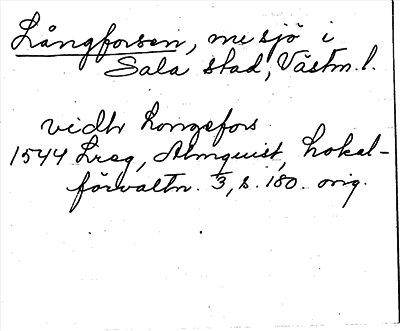 Långforsen, me sjö i
Sala stad, Västm. l.
vidh Longefors
1544 Lreg, Almquist, Lokal-
förvaltn. 3, s. 180. orig.